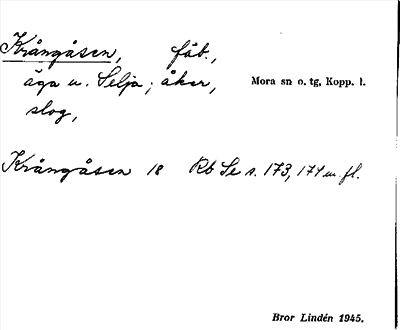 Krångåsen, fäb.,
äga u. Selja; åker,
slog,
Mora sn o. tg, Kopp. l.
Krångåsen 18 Rb Se s. 173, 174 m. fl.
Bror Lindén 1945.